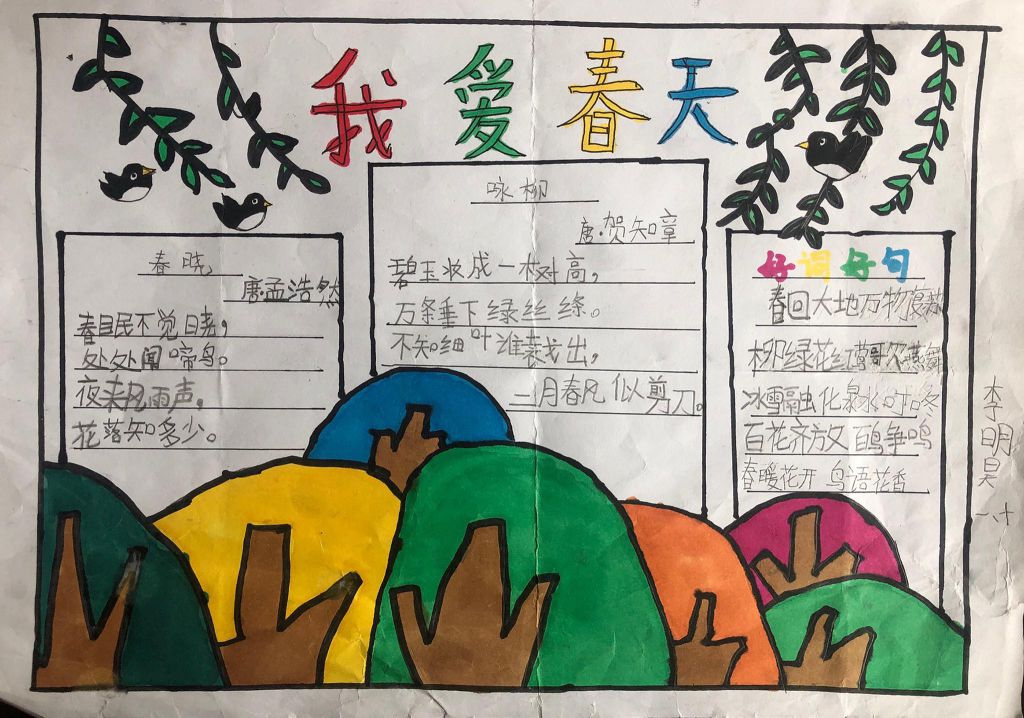 我爱春天
春晓
唐·孟浩然
春目民不觉日尧，
处处闻啼鸟。
夜来风雨声，
花落知多少。
咏柳
唐·贺知章
碧玉妆成一树高，
万条垂下绿丝绦。
不知细叶谁裁出，
二月春风似剪刀。
好词好句
春回大地万物复苏
柳绿花红莺歌燕舞
冰雪融化泉水叮咚
百花齐放百鸟争鸣
春暖花开 鸟语花香
李明昊
一、十